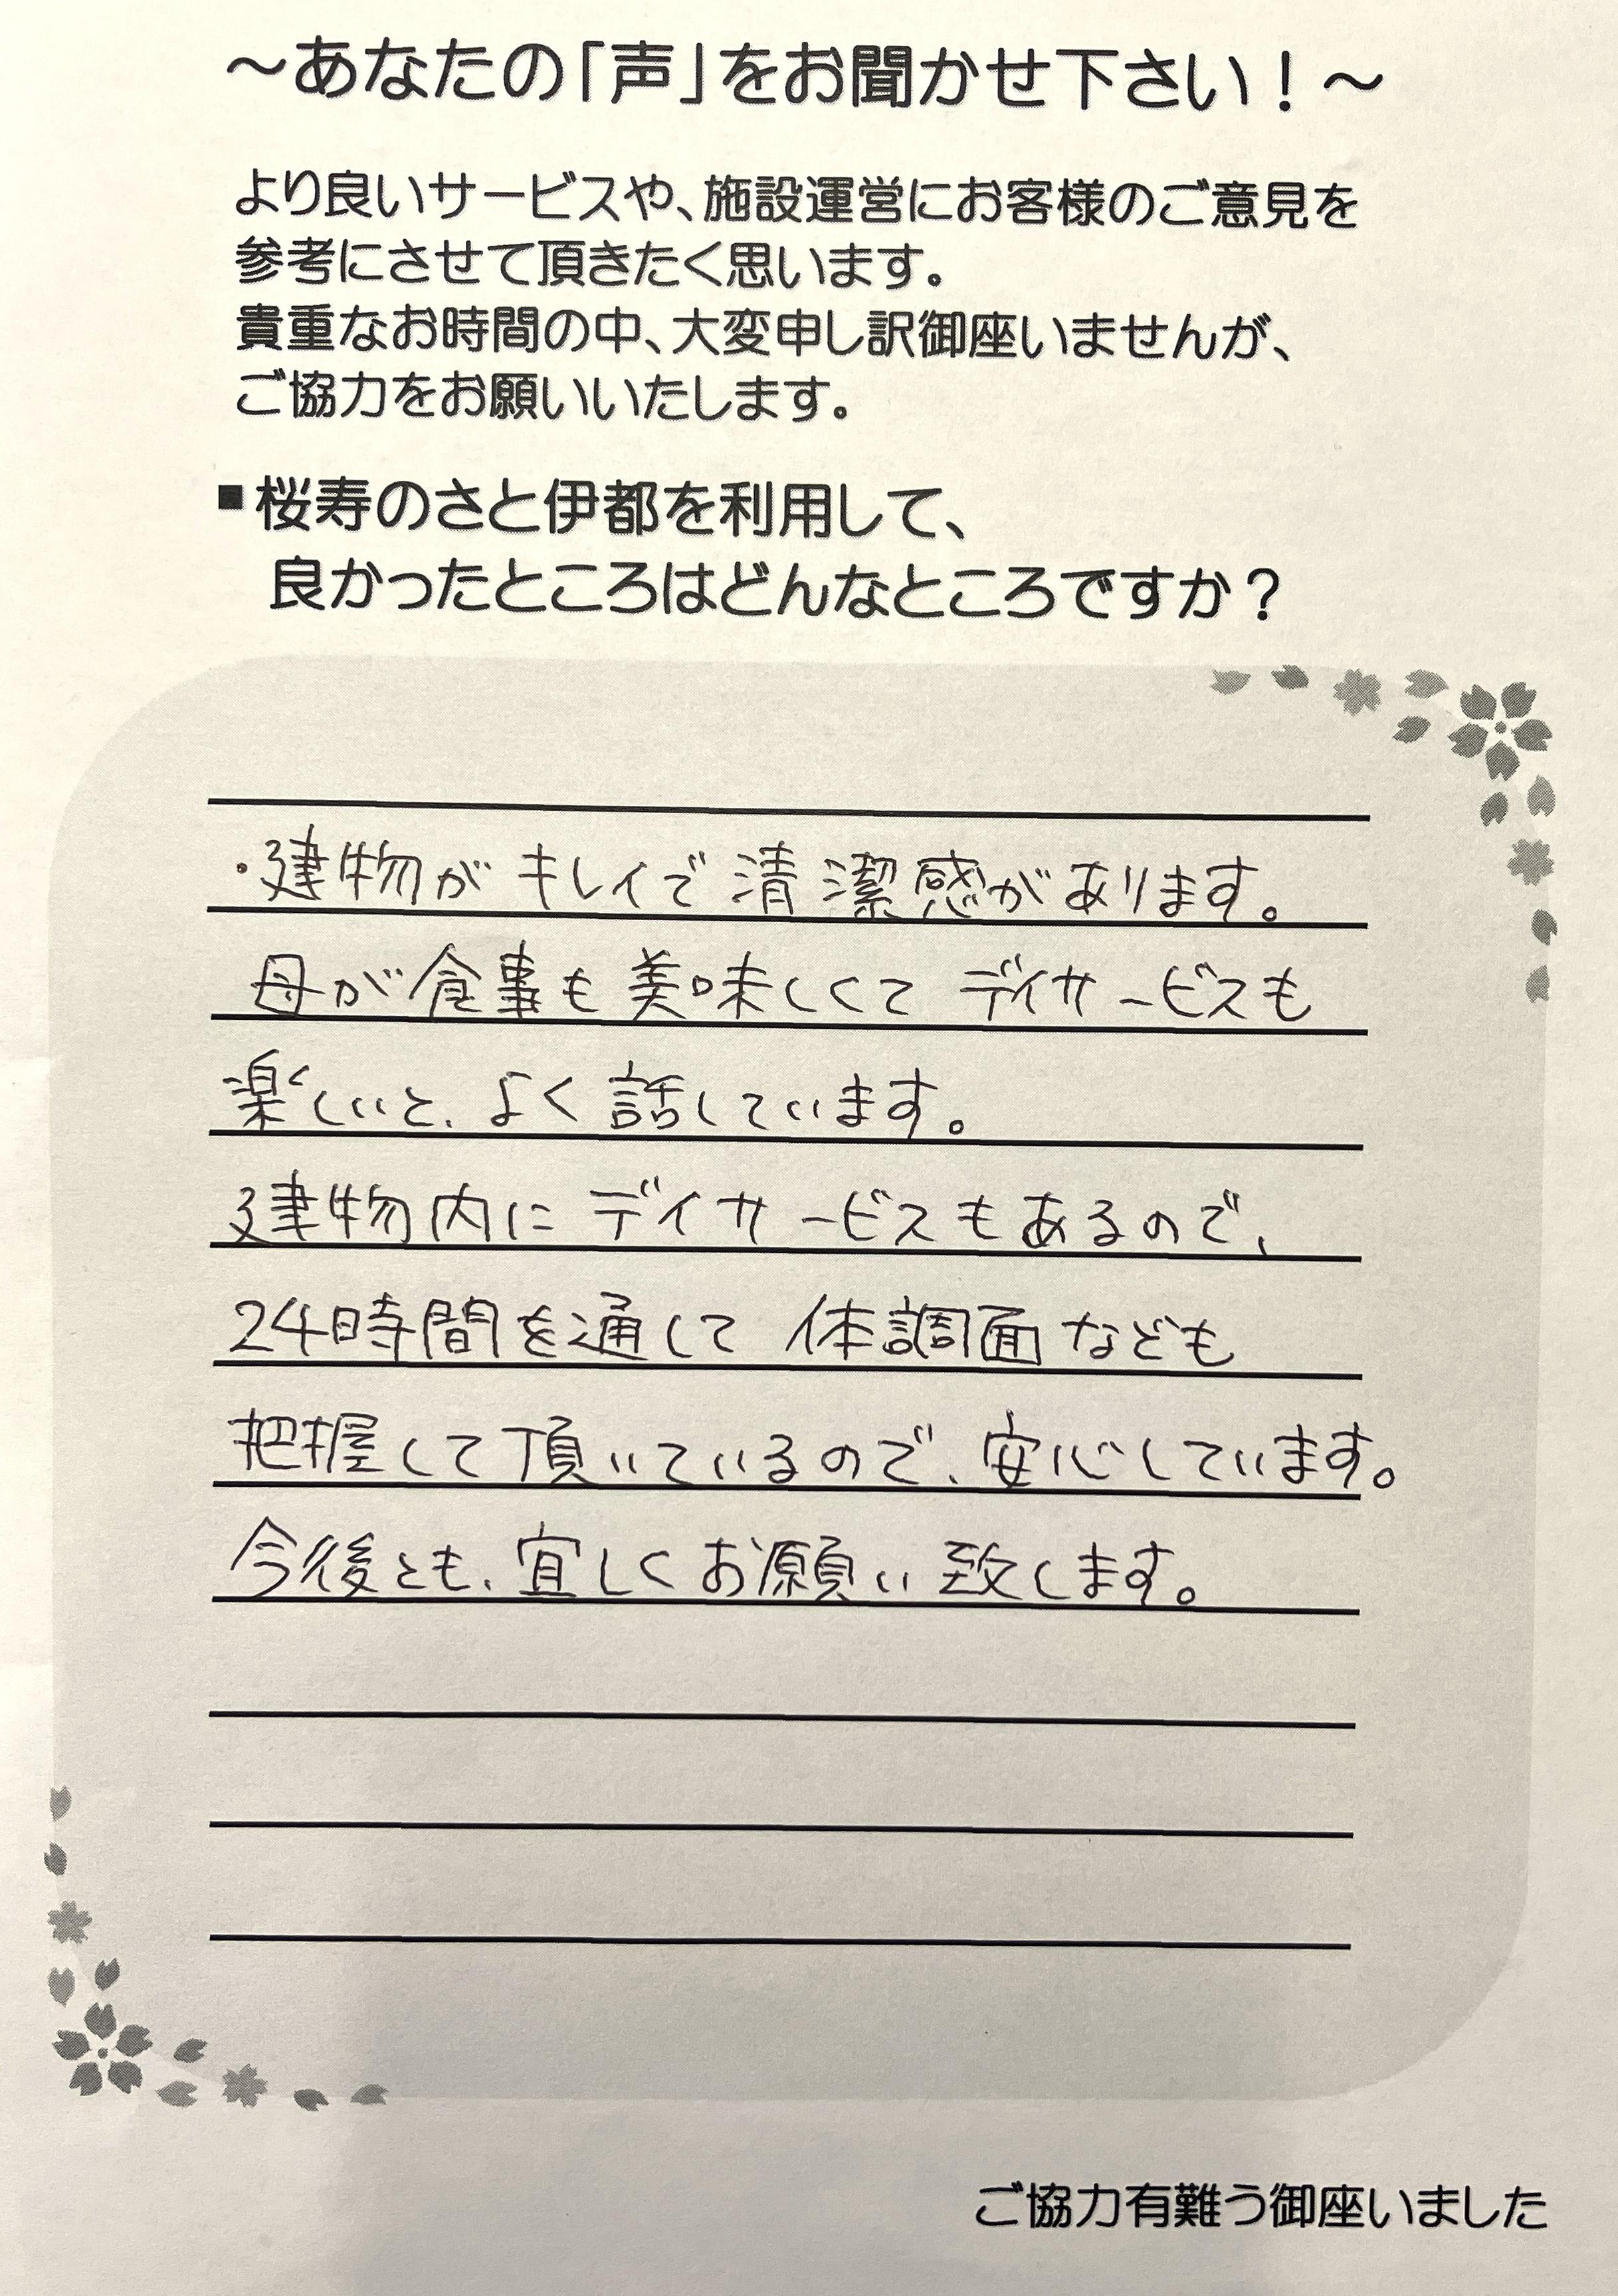 ～あなたの「声」をお聞かせ下さい！～
より良いサービスや、施設運営にお客様のご意見を
参考にさせて頂きたく思います。
貴重なお時間の中、大変申し訳御座いませんが、
ご協力をお願いいたします。
■桜寿のさと伊都を利用して、
良かったところはどんなところですか？
・建物がキレイで清潔感があります。
母が食事も美味しくてデイサービスも
楽しいと、よく話しています。
建物内にデイサービスもあるので、
24時間を通して体調面なども
把握して頂いているので、安心しています。
今後とも、宜しくお願い致します。
ご協力有難う御座いました